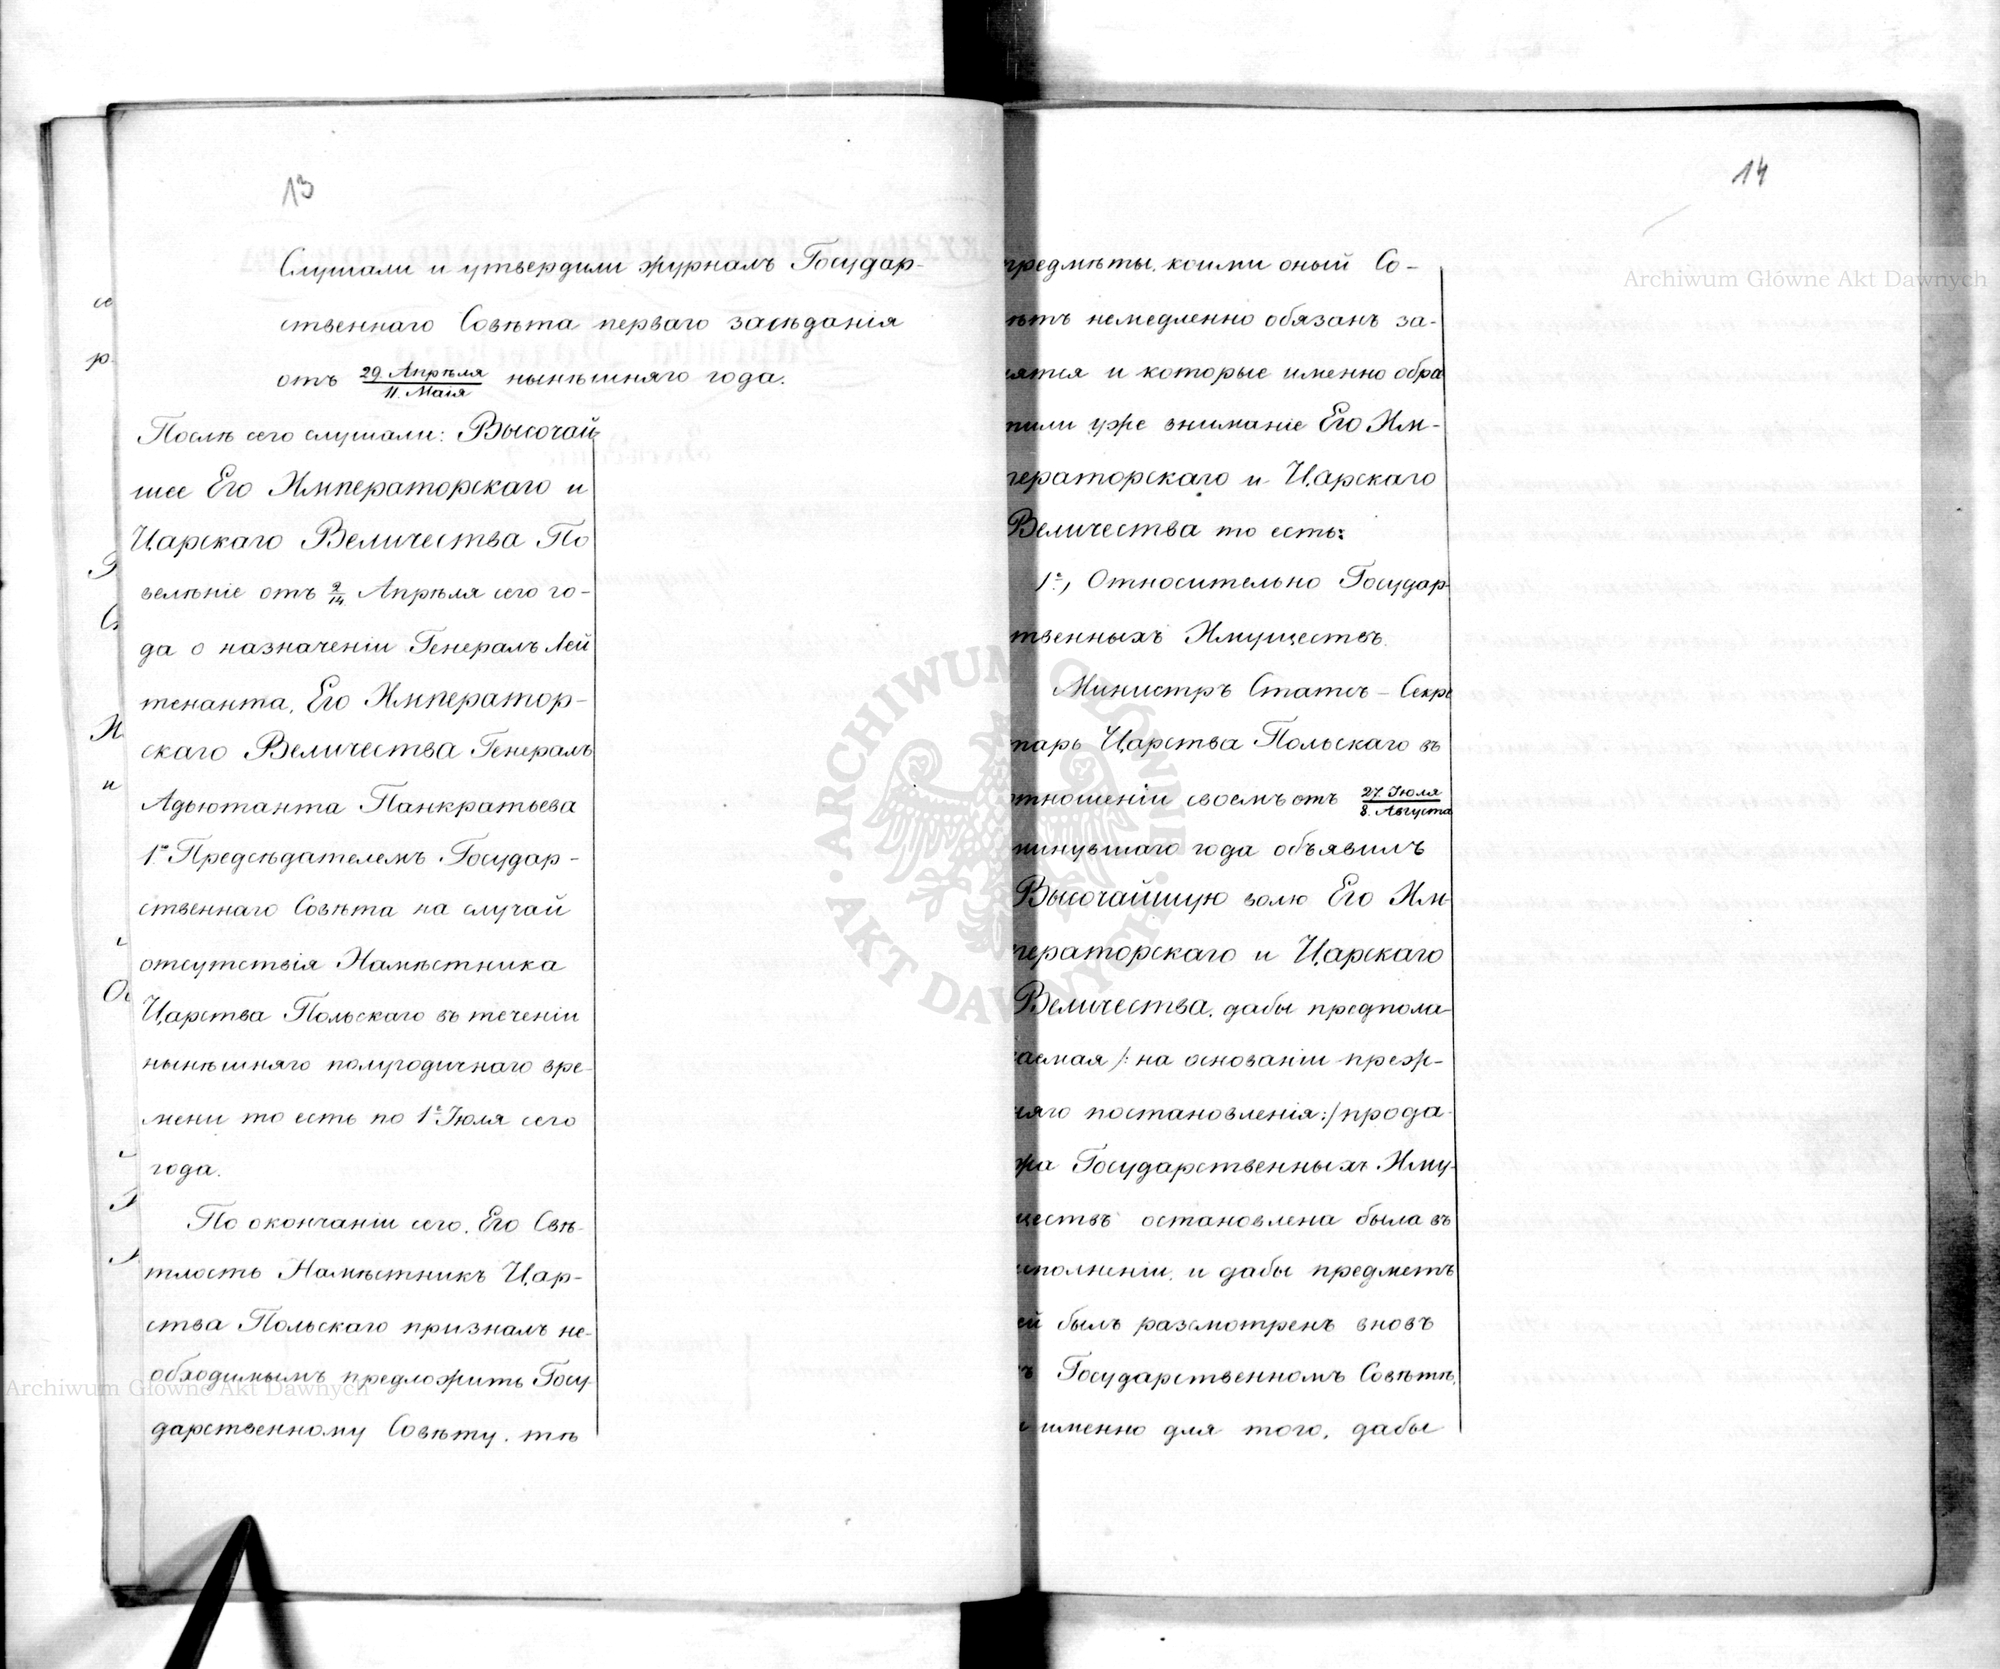 13
Слушали и утвердили журналъ Государ-
ственнаго Совѣта перваго засѣданія
отъ 29. Апрѣля / 11. Маія нынѣшняго года.
Послѣ сего слушали: Высочай
шее Его Императорскаго и
Царскаго Величества По
велѣніе отъ 2/14. Апрѣля сего го-
да о назначеніи Генералъ Лей
тенанта, Его Император-
скаго Величества Генералъ
Адьютанта Панкратьева
1.º Предсѣдателемъ Государ-
ственнаго Совѣта на случай
отсутствія Намѣстника
Царства Польскаго въ теченіи
нынѣшняго полугодичнаго вре-
мени то есть по 1º Іюля сего
года.
По окончаніи сего, Его Свѣ-
тлость Намѣстникъ Цар-
ства Польскаго призналъ не-
обходимымъ предложить Госу-
дарственному Совѣту, тѣ
14
предмѣты, коими оный Со-
ѣтъ немедленно обязанъ за-
ятся и которые именно обра
тили уже вниманіе Его Им-
ператорскаго и Царскаго
Величества то есть:
1º, Относительно Государ
твенныхъ Имуществъ.
Министръ Статсъ-Секре
тарь Царства Польскаго въ
отношеніи своемъ отъ 27. Іюля / 8. Августа
минувшаго года объявилъ
Высочайшую волю Его Им
ператорскаго и Царскаго
Величества, дабы предпола
гаемая /: на основаніи преж-
няго постановленія :/ прода-
жа Государственныхъ Иму-
ществъ остановлена была въ
исполненіи, и дабы предметъ
ей былъ разсмотренъ вновъ
ъ Государственномъ Совѣтѣ,
и именно для того, дабы
Archiwum Główne Akt Dawnych
Archiwum Główne Akt Dawnych
ARCHIWUM GŁÓWNE · AKT DAWNYCH ·